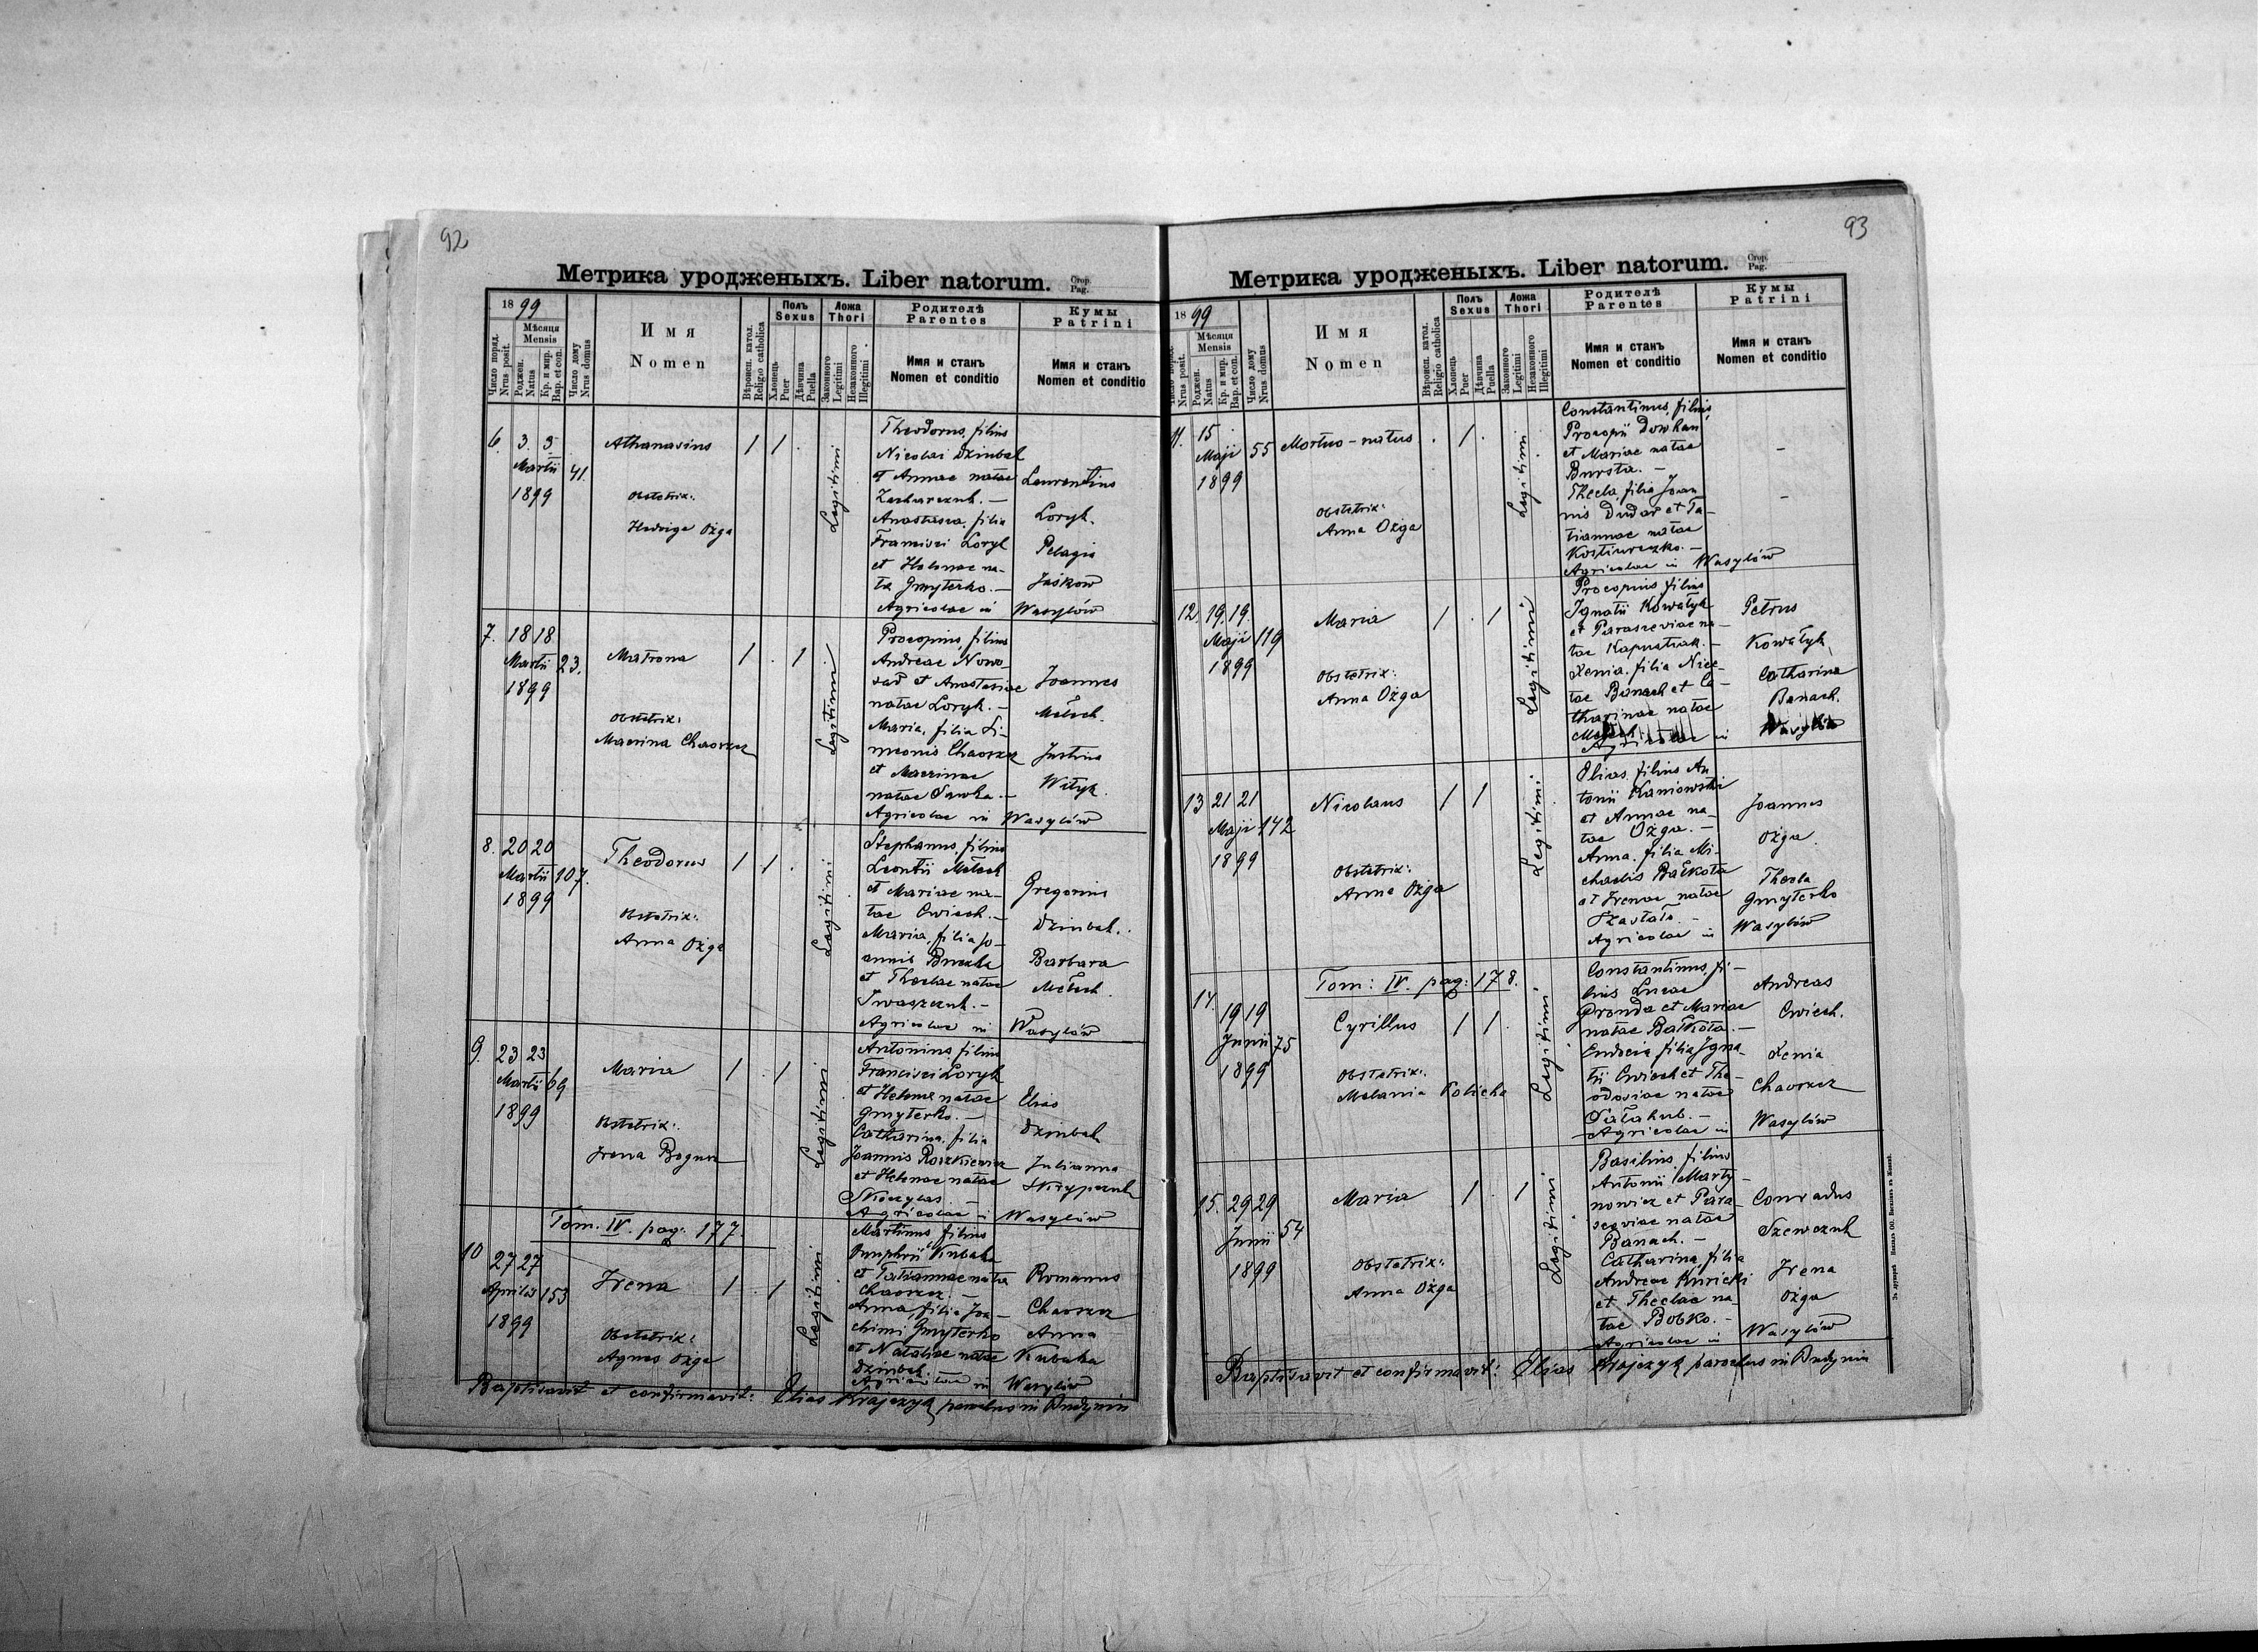 92
Метрика уродженыхъ. Liber natorum. Стор. Pag.
1899
Число поряд. Nrus posit.
Мѣсяця Mensis
Роджен. Natus
Кр. и мир. Bap. et con.
Число дому Nrus domus
Имя
Nomen
Вѣроисп. катол. Religio catholica
Полъ Sexus
Хлопець Puer
Дѣвчина Puella
Ложа Thori
Законного Legitimi
Незаконного Illegitimi
Родителѣ Parentes
Имя и станъ
Nomen et conditio
Кумы Patrini
Имя и станъ
Nomen et conditio
6. 3. 3
Martii 41.
1899
Athanasius
Obstetrix:
Hedviga Ożga
1 1 .
Legitimi
Theodorus, filius
Nicolai Dziubak
et Annae natae
Zacharczuk. —
Anastasia, filia
Francisci Loryk
et Helenae na-
ta Gmyterko. —
Agricolae in Wasylów
Laurentius
Loryk.
Pelagia
Jaśkow
7. 18 18
Martii 23.
1899
Matrona
Obstetrix:
Macrina Chaorz
1 . 1
Legitimi
Procopius, filius
Andreae Nowo-
sad et Anastasiae
natae Loryk. —
Maria, filia Si-
meonis Chaorz
et Macrinae
natae Sawka. —
Agricolae in Wasylów
Joannes
Mełech.
Justina
Wityk.
8. 20 20
Martii 107.
1899
Theodorus
Obstetrix:
Anna Ożga
1 1 .
Legitimi
Stephanus, filius
Leontii Mełech
et Mariae na-
tae Cwiech. —
Maria, filia Jo-
annis Buczko
et Theclae natae
Iwaszczuk. —
Agricolae in Wasylów
Gregorius
Dziubak.
Barbara
Mełech
9. 23 23
Martii 69
1899
Maria
Obstetrix:
Irena Bogusz
1 . 1
Legitimi
Antonius, filius
Francisci Loryk
et Helenae natae
Gmyterko. —
Catharina, filia
Joannis Roszkiewicz
et Helenae natae
Skoczylas. —
Agricolae in Wasylów
Elias
Dziubak
Julianna
Skrypczuk
Tom. IV. pag: 177.
10 27 27
Aprilis 153
1899
Irena
Obstetrix:
Agnes Ożga
1 . 1
Legitimi
Martinus, filius
Onuphrii Kubaka
et Tatiannae natae
Chaorz. —
Anna, filia Joa-
chimi Gmyterko
et Nataliae natae
Dziubak.
Agricolae in Wasylów
Romanus
Chaorz
Anna
Kubaka
Baptisavit et confirmavit: Elias Krajczyk parochus in Budynin
93
Метрика уродженыхъ. Liber natorum. Стор. Pag.
1899
Nrus posit.
Мѣсяця Mensis
Роджен. Natus
Кр. и мир. Bap. et con.
Число дому Nrus domus
Имя
Nomen
Вѣроисп. катол. Religio catholica
Полъ Sexus
Хлопець Puer
Дѣвчина Puella
Ложа Thori
Законного Legitimi
Незаконного Illegitimi
Родителѣ Parentes
Имя и станъ
Nomen et conditio
Кумы Patrini
Имя и станъ
Nomen et conditio
11. 15
Maji 55
1899
Mortuo-natus
Obstetrix:
Anna Ożga
. 1 .
Legitimi
Constantinus, filius
Procopii Dowhan
et Mariae natae
Bursta. —
Thecla, filia Joan-
nis Dudar et Ta-
tiannae natae
Kostiureczko. —
Agricolae in Wasylów
—
—
12. 19. 19.
Maji 119
1899
Maria
Obstetrix:
Anna Ożga
1 . 1
Legitimi
Procopius, filius
Ignatii Kowałyk
et Parasceviae na-
tae Kapustiak. —
Xenia, filia Nice-
tae Banach et Ca-
tharinae natae
Agricolae in Wasylów
Petrus
Kowałyk
Catharina
Banach.
13 21 21
Maji 142
1899
Nicolaus
Obstetrix:
Anna Ożga
1 1
Legitimi
Elias, filius An-
tonii Kaniowski
et Annae na-
tae Ożga. —
Anna, filia Mi-
chaelis Bałkota
et Irenae natae
Agricolae in Wasylów
Joannes
Ożga.
Thecla
Gmyterko
Tom: IV. pag: 178.
14. 19 19
Junii 75
1899
Cyrillus
Obstetrix:
Melania Kolicha
1 1 .
Legitimi
Constantinus, fi-
lius Lucae
Gronda et Mariae
natae Bałkota. —
Eudocia, filia Igna-
tii Cwiech et The-
odosiae natae
Sałakub. —
Agricolae in Wasylów
Andreas
Cwiech.
Xenia
Chaorz
15. 29 29
Junii 54
1899
Maria
Obstetrix:
Anna Ożga
1 . 1
Legitimi
Basilius, filius
Antonii Marty-
nowicz et Para-
sceviae natae
Banach. —
Catharina, filia
Andreae Kuricki
et Theclae na-
tae Bobko. —
Agricolae in Wasylów
Conradus
Szewczuk
Irena
Ożga
Baptisavit et confirmavit: Elias Krajczyk parochus in Budynin